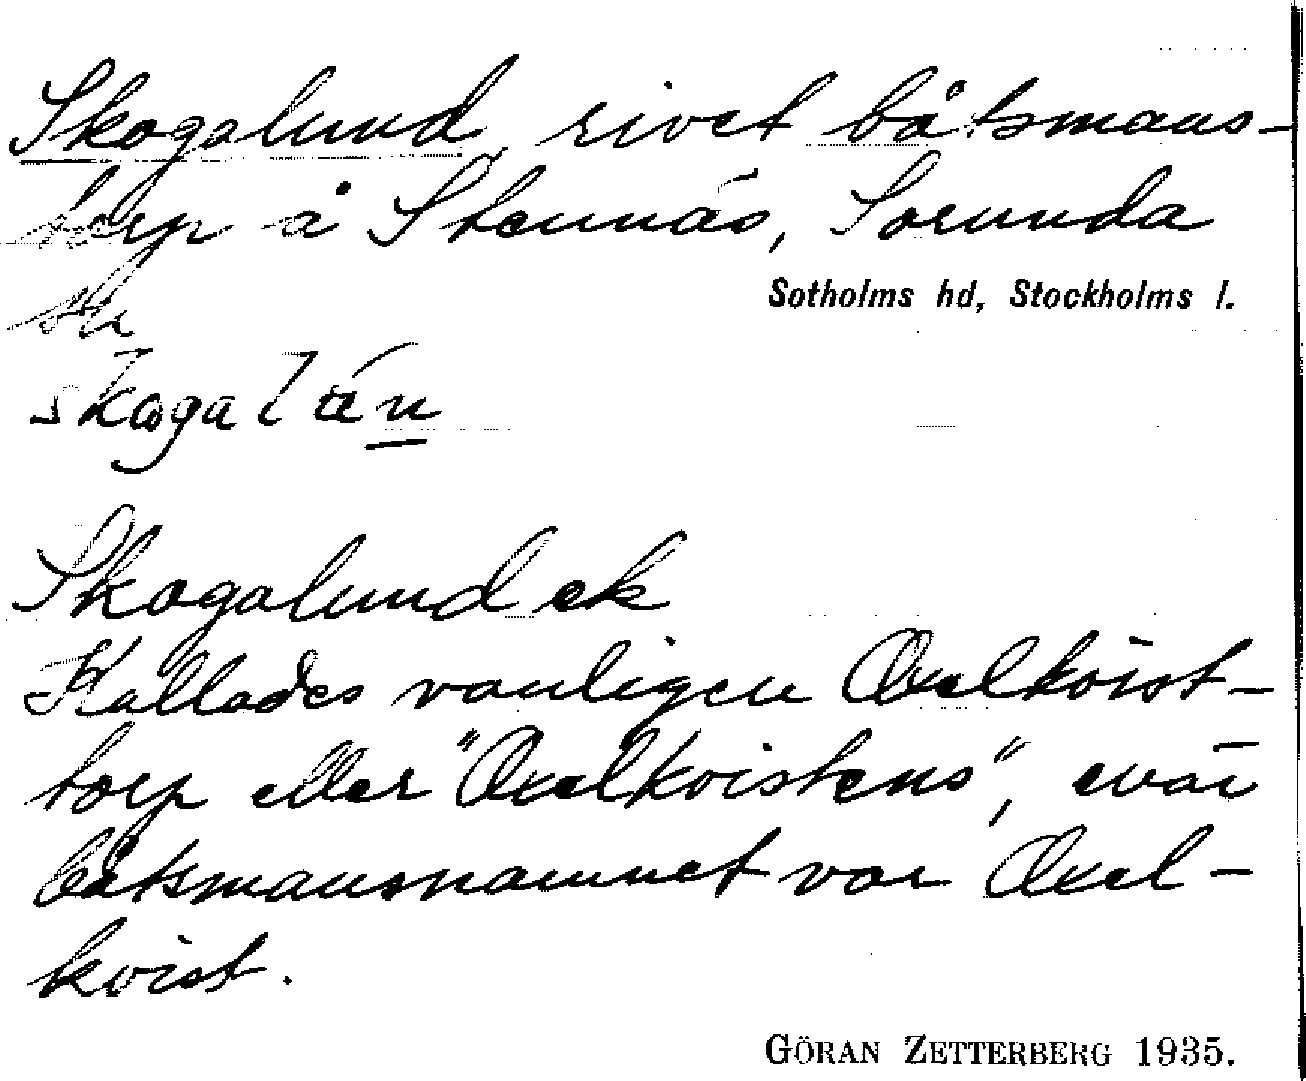 Skogalund, rivet båtsmans-
torp å Stennäs, Sorunda
sn
Sotholms hd, Stockholms l.
Skogalund ek
Kallades vanligen Axelkvist-
torp eller "Axelkvistens", enär
båtsmansnamnet var Axel-
kvist.
GÖRAN ZETTERBERG 1935.